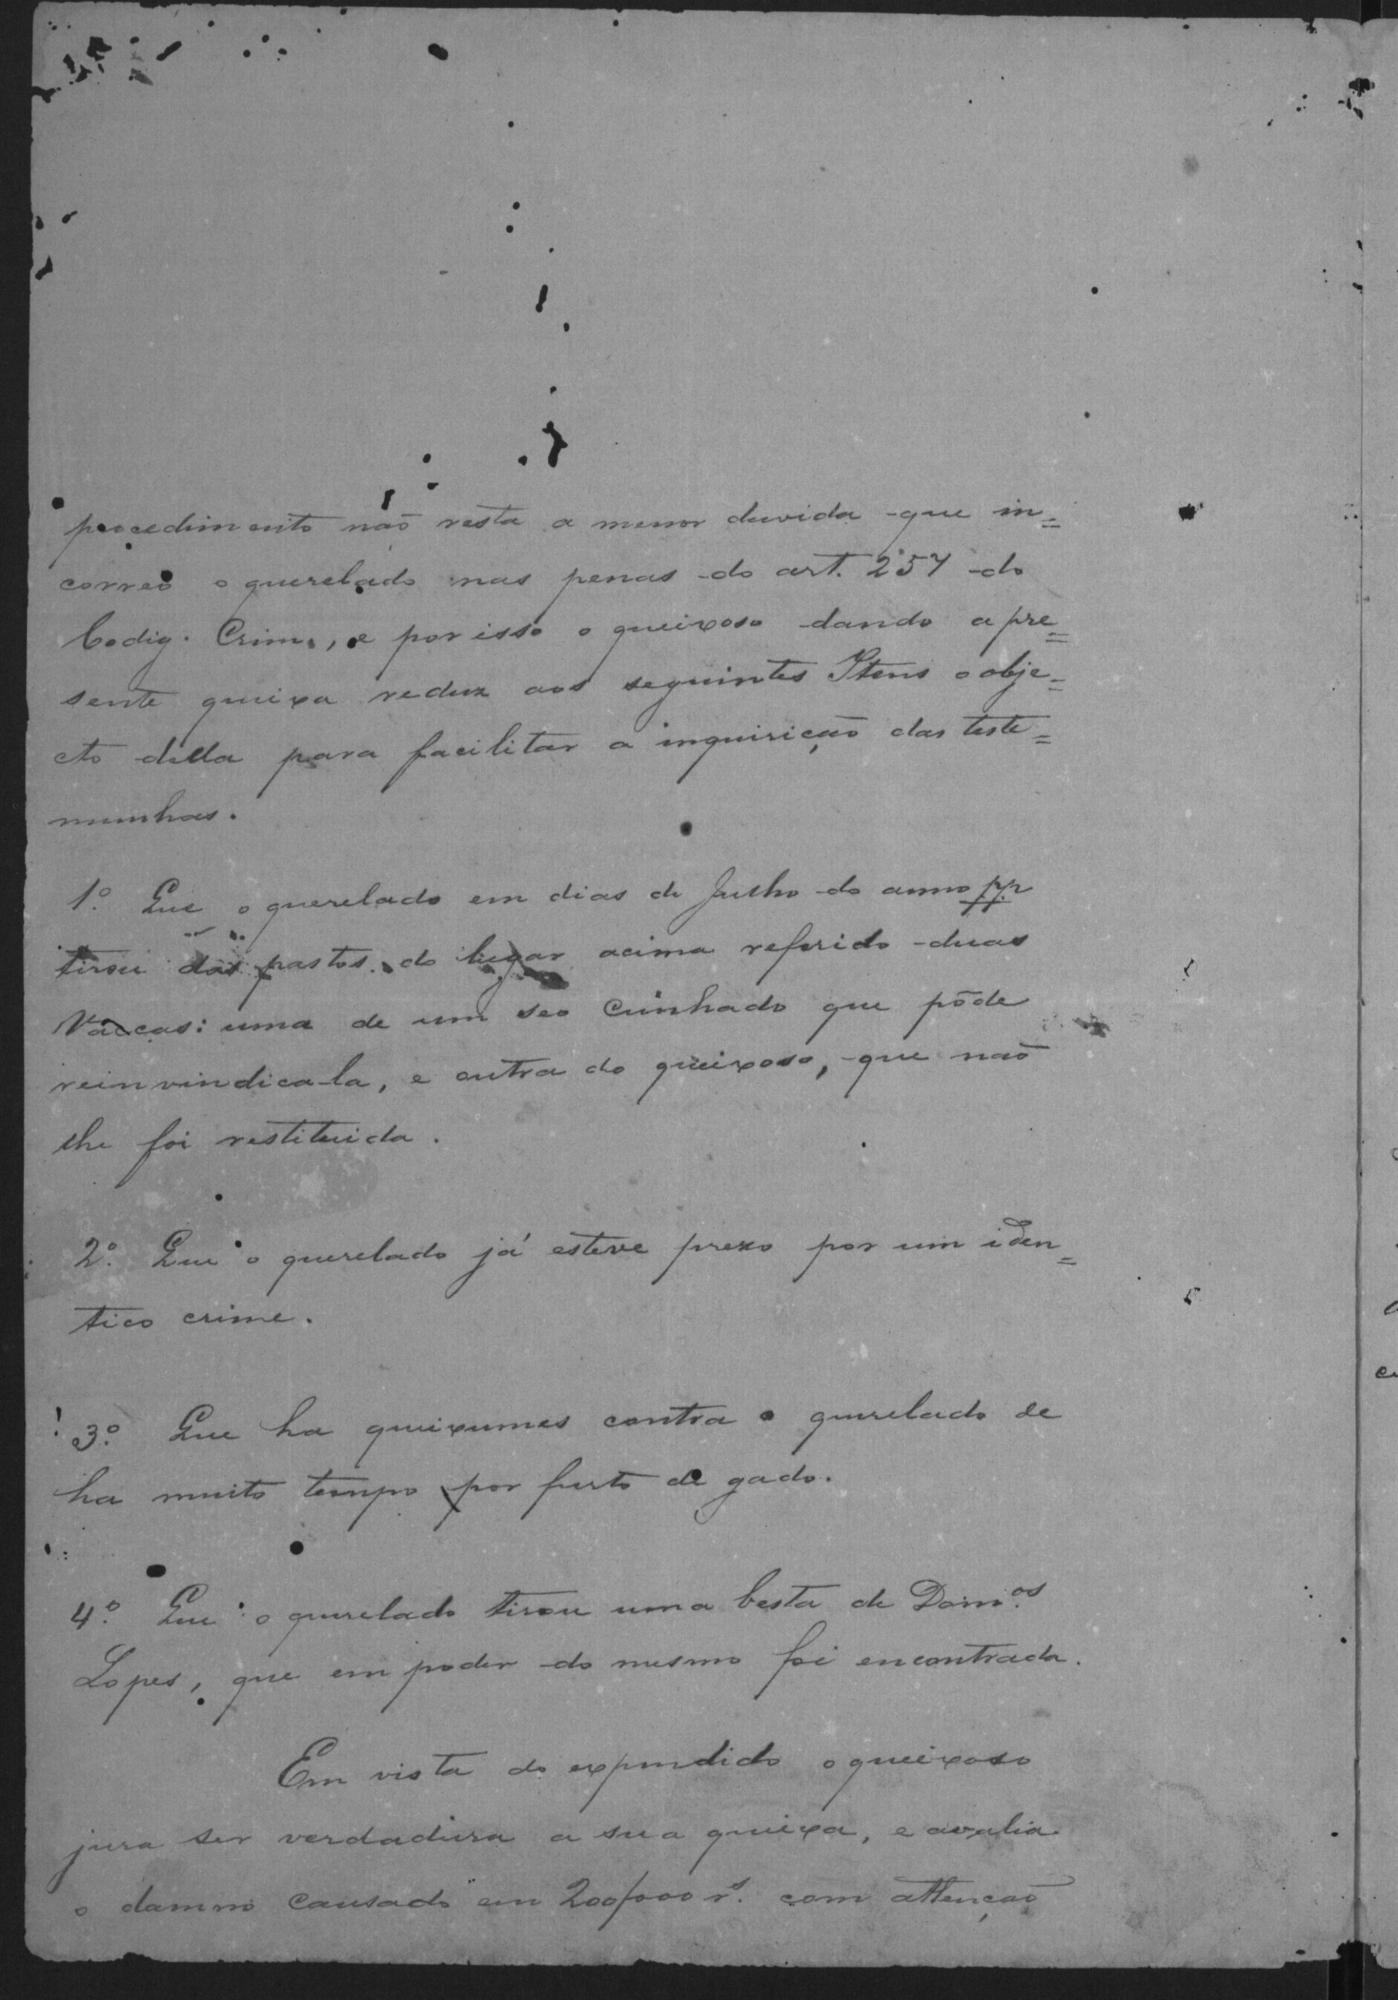 procedimento não resta a menor duvida que in=
correo o querelado nas penas do art. 257 do
Codig. Crim., e por isso o queixoso dando a pre=
sente queixa reduz aos seguintes Itens o obje=
cto della para facilitar a inquirição das teste=
munhas.
1.º Que o querelado em dias de Julho do anno pp
tirou das pastos do lugar acima referido duas
Vaccas: uma de um seo Cunhado que pôde
reinvindica-la, e outra do queixoso, que não
lhe foi restituida.
2.º Que o querelado já esteve prezo por um iden=
tico crime.
3.º Que ha queixumes contra o querelado de
ha muito tempo por furto de gado.
4.º Que o querelado tirou uma besta de Dom.os
Lopes, que em poder do mesmo foi encontrada.
Em vista do expendido o queixoso
jura ser verdadeira a sua queixa, e avalia
o damno causado em 200$000 rs. com attenção